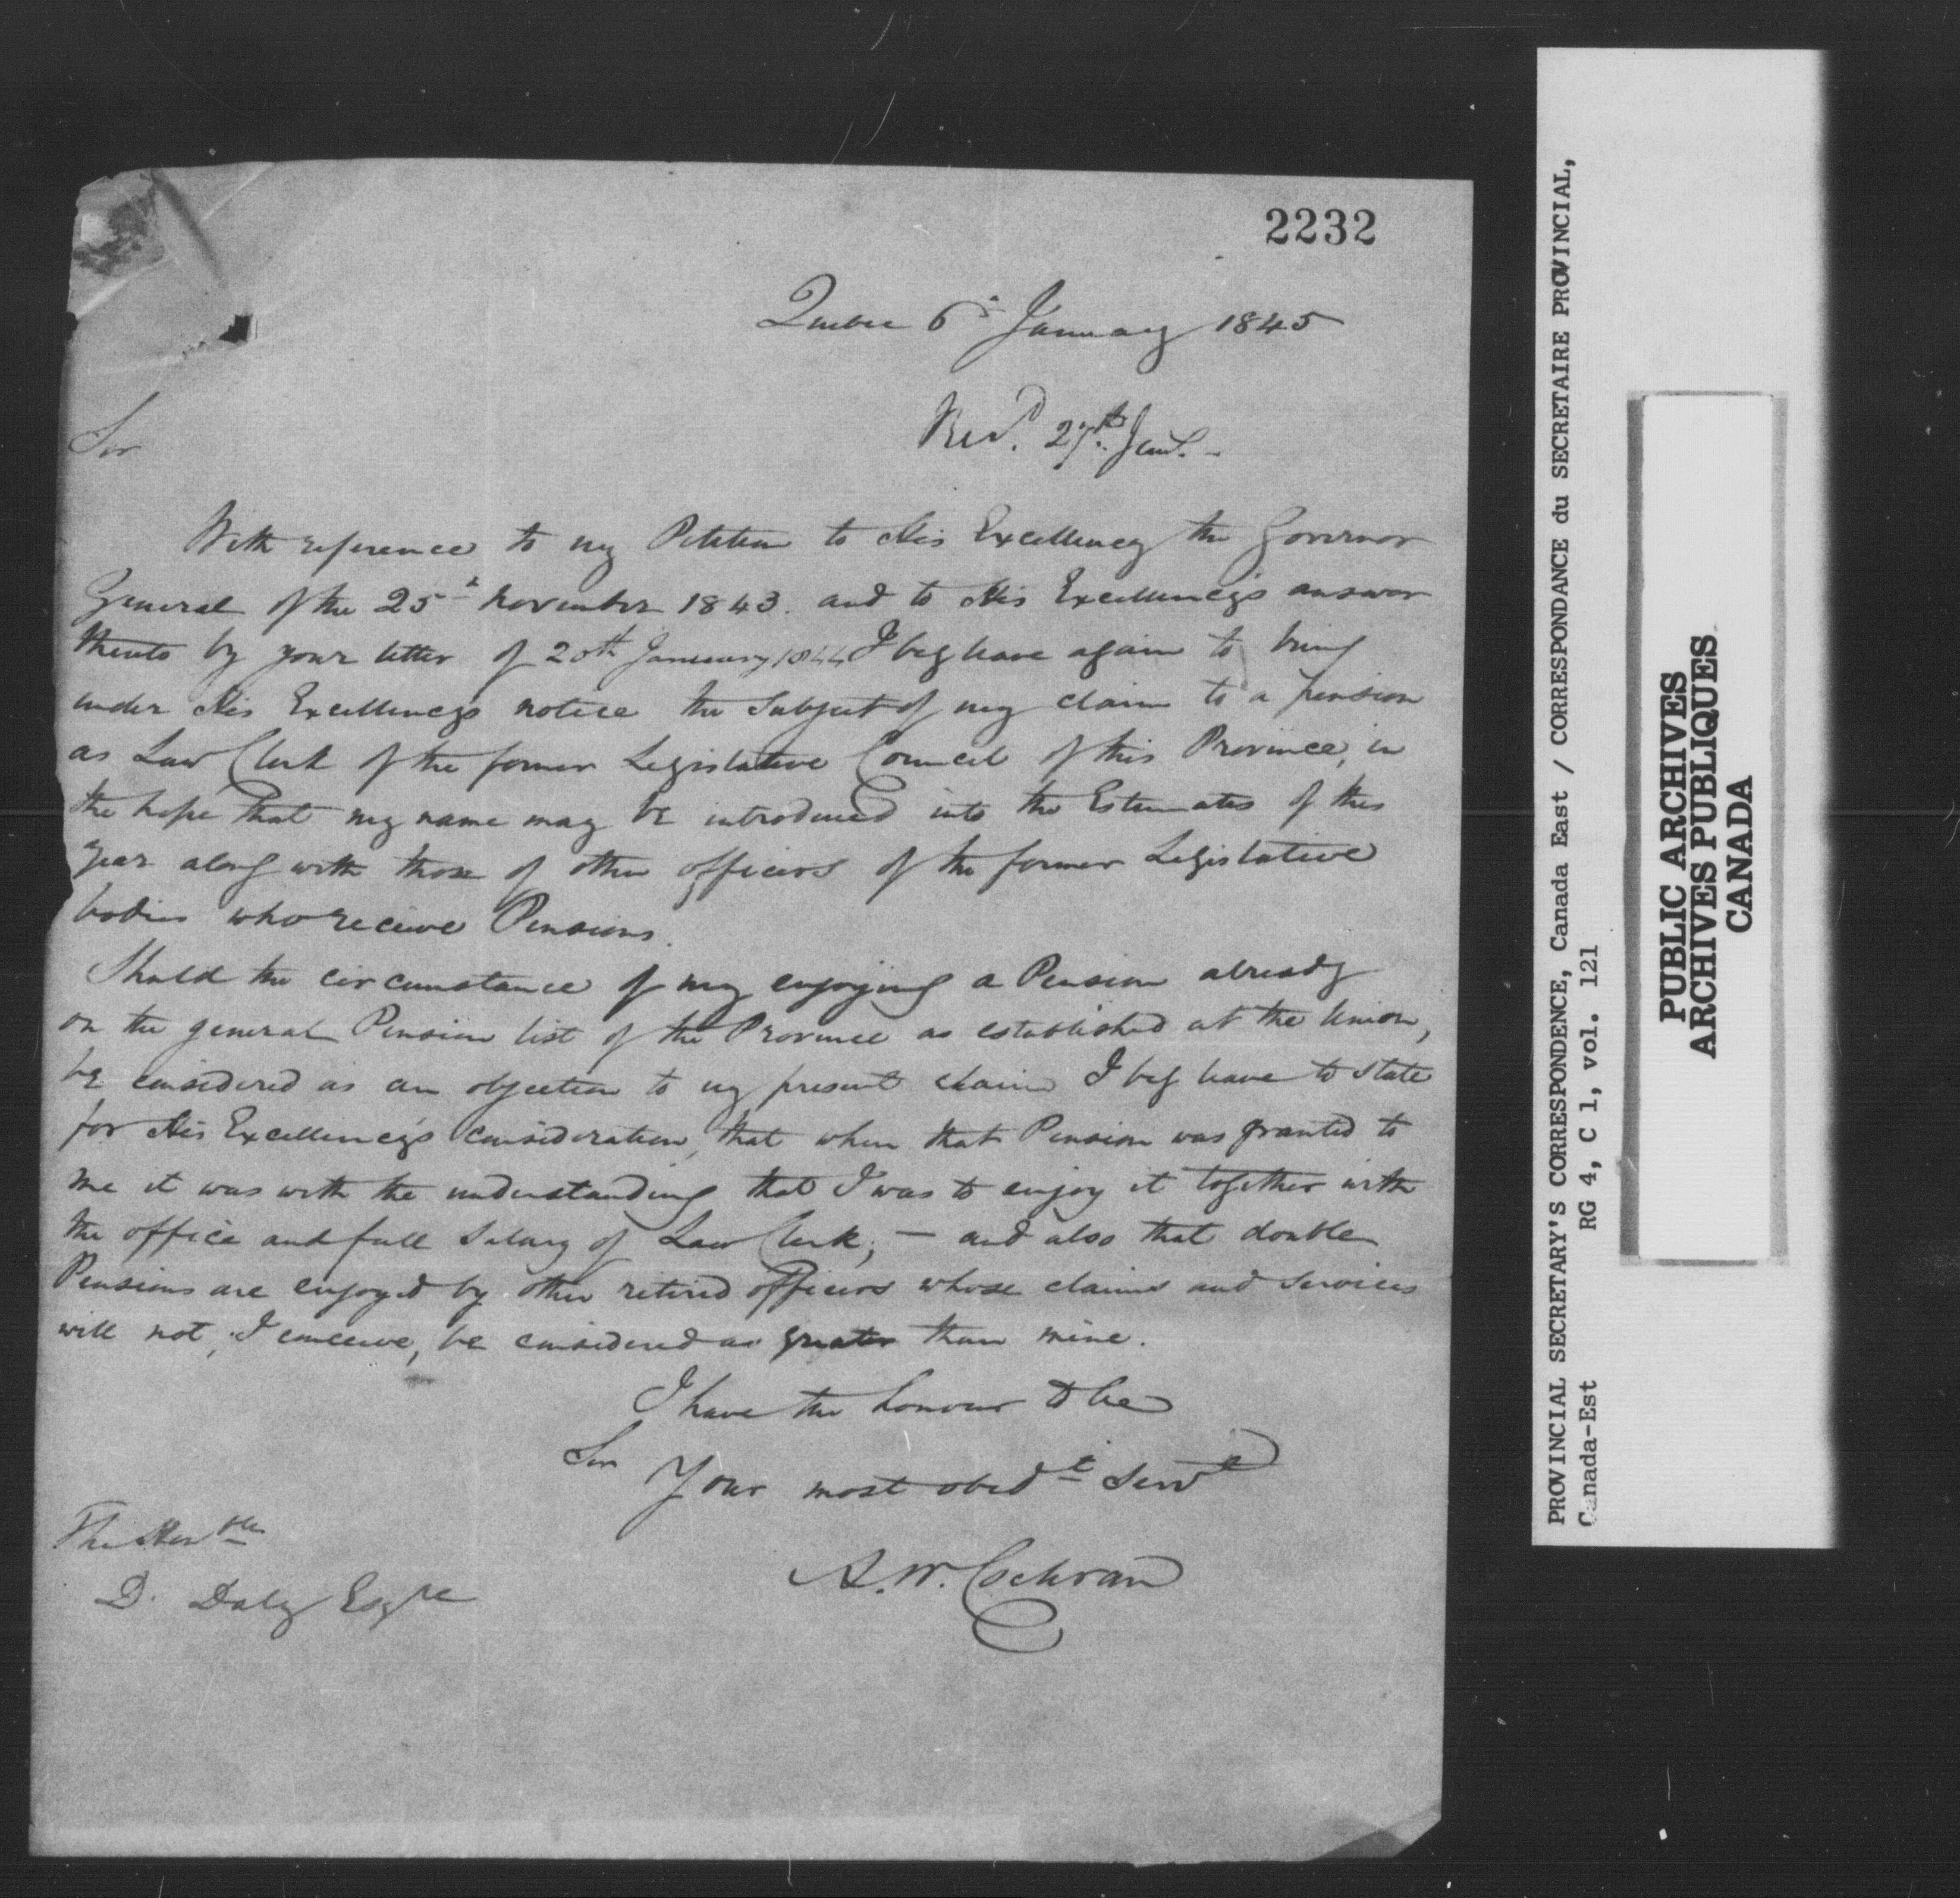 2232
Quebec 6th January 1845
Recd. 27th Jany.
Sir
With reference to my Petition to His Excellency the Governor
General of the 25th November 1843. and to His Excellency's answer
thereto by your letter of 20th January 1844 I beg leave again to bring
under His Excellencys notice the subject of my claim to a pension
as Law Clerk of the former Legislative Council of this Province, in
the hope that my name may be introduced into the Estimates of this
year along with those of other officers of the former Legislative
bodies who receive Pensions.
Should the circumstance of my enjoying a Pension already
on the general Pension list of the Province as established at the Union,
be considered as an objection to my present claim I beg leave to state
for His Excellency's consideration, that when that Pension was granted to
me it was with the understanding that I was to enjoy it together with
the office and full salary of Law Clerk; — and also that double
Pensions are enjoyed by other retired officers whose claims and services
will not, I conceive, be considered as greater than mine.
I have the honour to be
Sir
Your most obedt Servt
A. W. Cochran
The Honble
D. Daly Esqre
PROVINCIAL SECRETARY'S CORRESPONDENCE, Canada East / CORRESPONDANCE du SECRETAIRE PROVINCIAL,
Canada-Est RG 4, C 1, vol. 121
PUBLIC ARCHIVES
ARCHIVES PUBLIQUES
CANADA